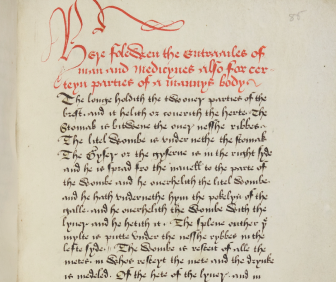 85
Here folowen the Entrayles of
man and medicynes also for cer-
teyn parties of a mannys body
The longe holdith the two ouer parties of the
brest . and it helith or couerith the herte . The
Stomak is bitwene the oner nesshe ribbes .
The litel Wombe is vnder nethe the stomak
The Gyser or the gyserne is in the right syde
and he is sprad fro the nauell to the parte of
the Wombe and he ouerhelith the litel Wombe .
and he hath vndernethe hym the pokelyn of the
galle . and he ouerhelith the Wombe With the
lyuer and he hetith it . The splene outher ye
mylte is putte vnder the nesshe rybbes in the
lefte syde . The Wombe is resceit of alle the
metes . in Whos resceit the mete and the drynke
is medeled . Of the hete of the lyuer . and in